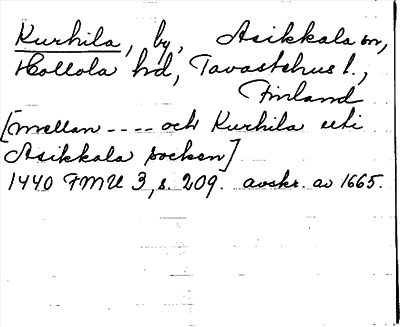 Kurhila, by, Asikkala sn,
Hollola hd, Tavastehus l.,
Finland
[mellan ---- och Kurhila uti
Asikkala socken]
1440 FMU 3, s. 209. avskr. av 1665.